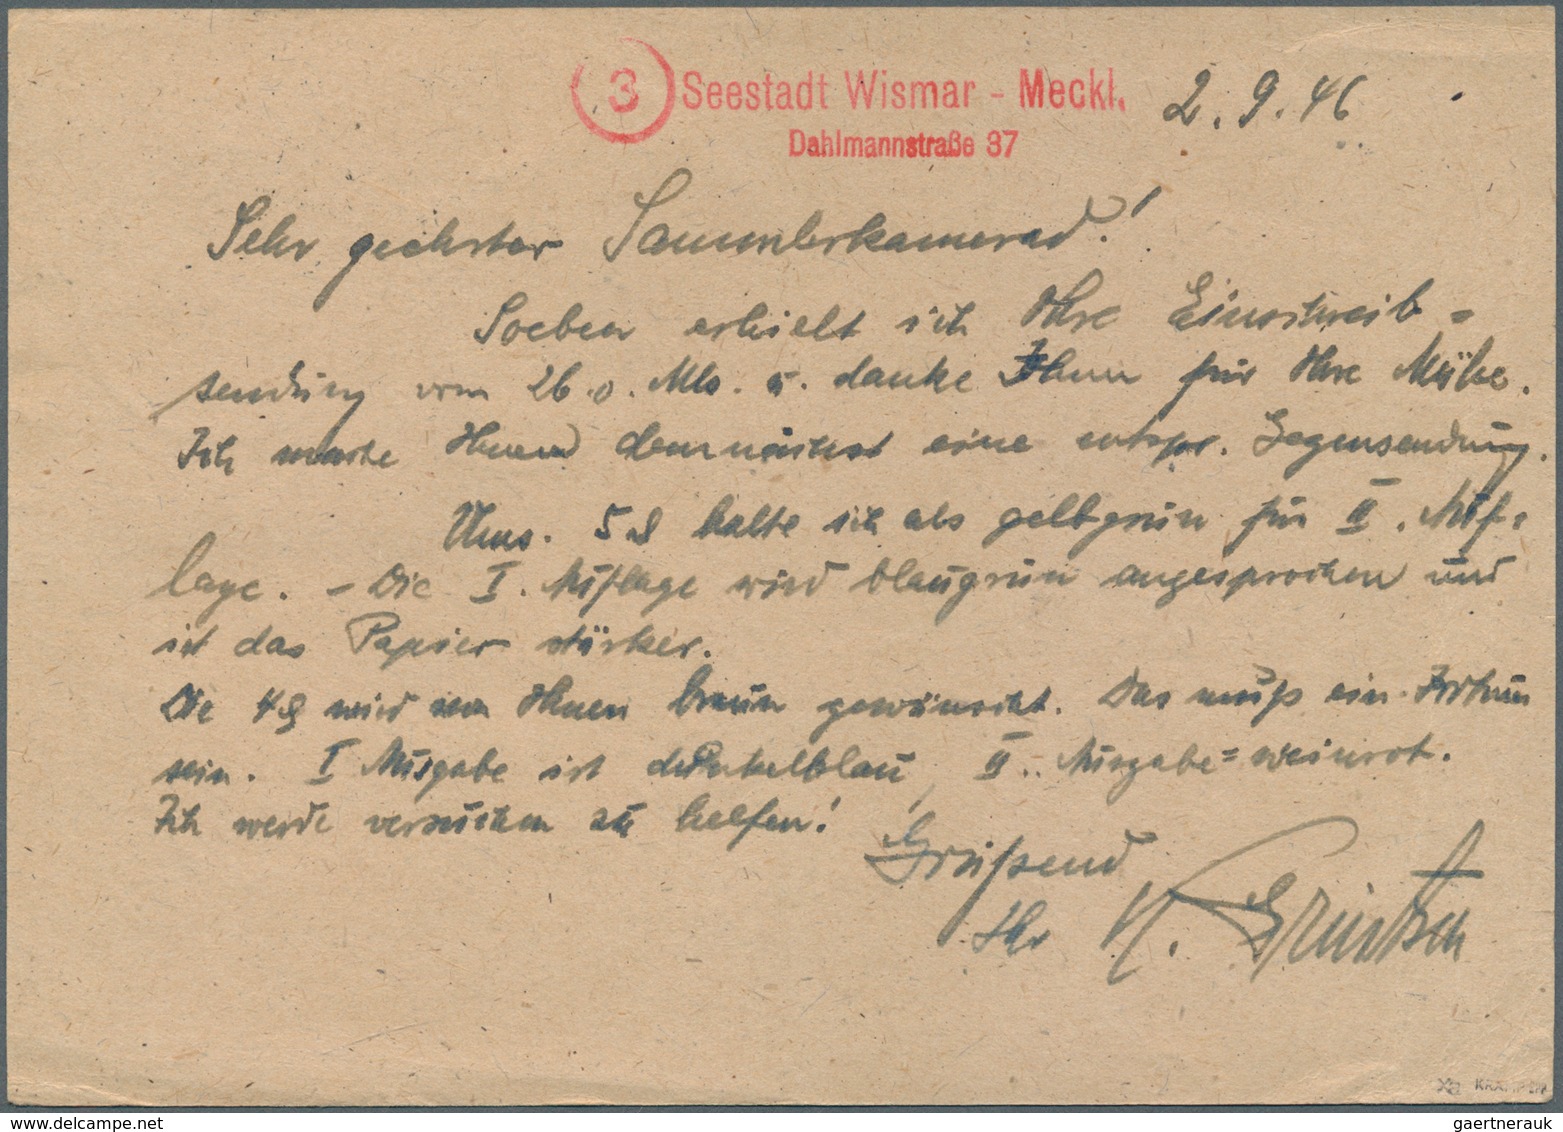 3 Seestadt Wismar - Meckl. 2.9.46
Dahlmannstraße 37
Sehr geehrter Sammlerkamerad!
Soeben erhielt ich Ihre Einschreib=
sendung vom 26. v. Mts. u. danke Ihnen für Ihre Mühe.
Ich mache Ihnen demnächst eine entspr. Gegensendung.
5 halte ich als gelbgrün für II. Auf=
lage. - Die I. Auflage wird blaugrün angesprochen und
ist das Papier stärker.
Die 4 wird von Ihnen braun gewünscht. Das muß ein Irrtum
sein. I Ausgabe ist dunkelblau, II. Ausgabe = weinrot.
Ich werde versuchen zu helfen!
Grüßend
Ihr
gaertnerauk @ delcampe.net